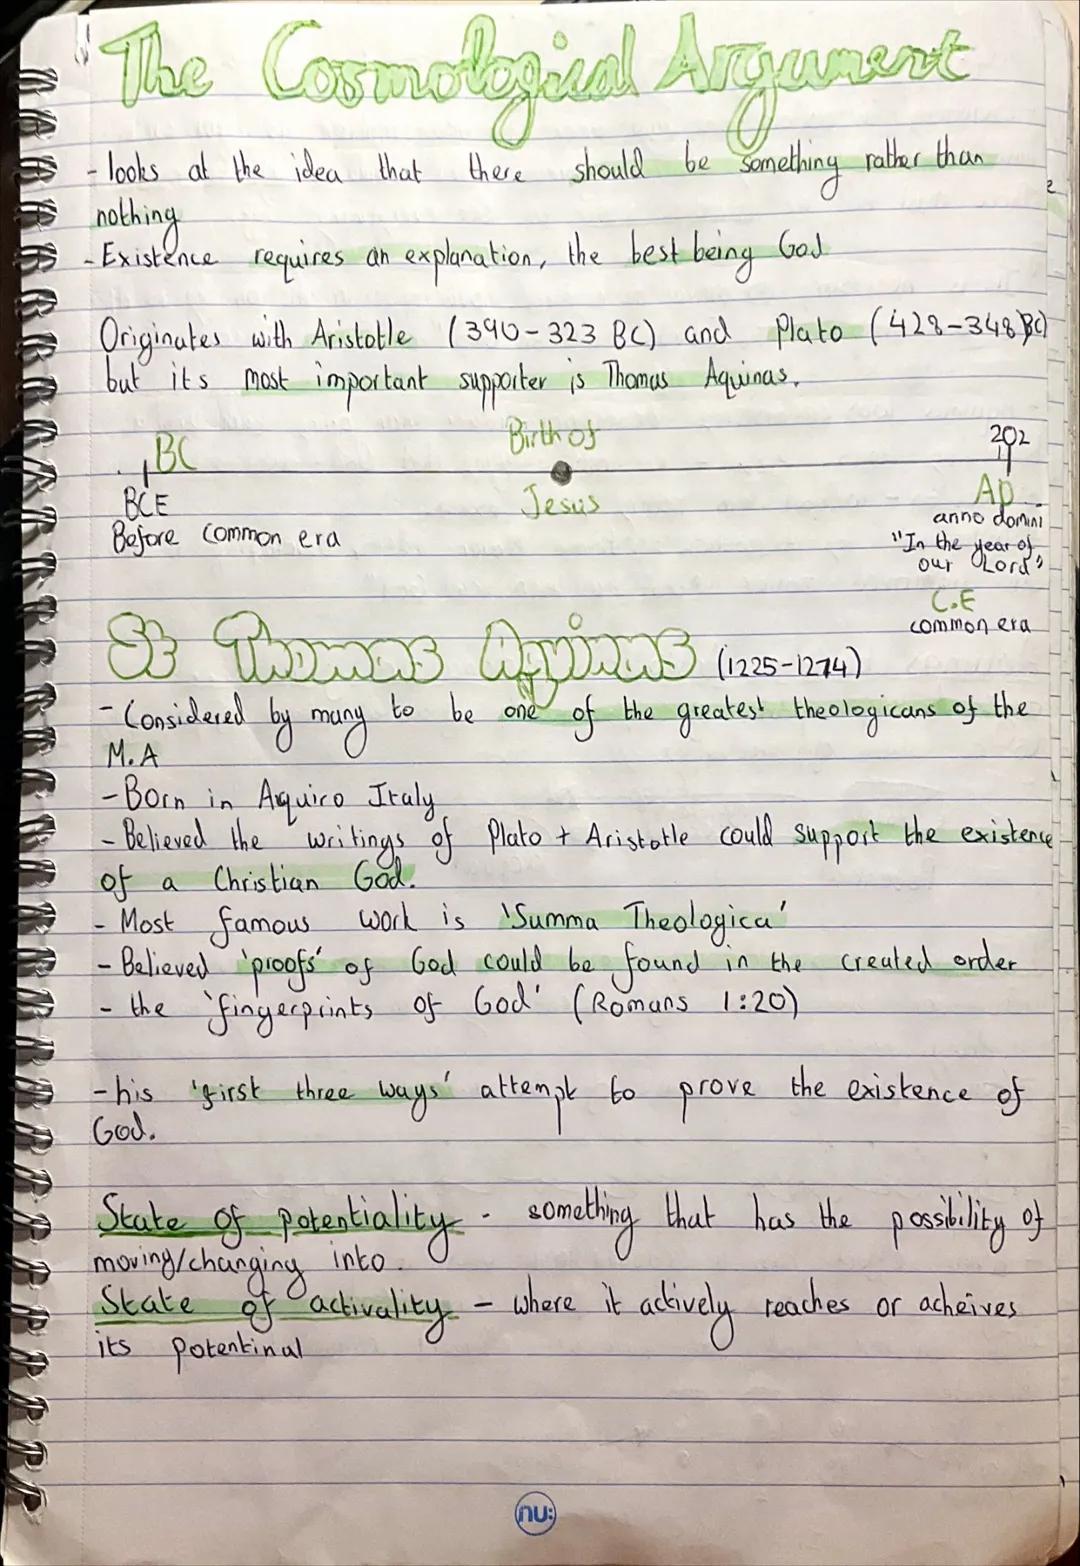 The Cosmological Argument
- looks at the idea that there should be something rather than
nothing
- Existence requires an explanation, the best being God
Originates with Aristotle (390-323 BC) and Plato (428-348 BC)
but its most important supporter is Thomas Aquinas.
BC Birth of 202
BCE Jesus AD
Before common era anno domini
"In the year of
our Lord"
C.E
common era
St Thomas Aquinas (1225-1274)
- Considered by many to be one of the greatest theologicans of the
M.A
- Born in Aquiro Italy
- Believed the writings of Plato + Aristotle could support the existence
of a Christian God.
- Most famous work is 'Summa Theologica'
- Believed 'proofs' of God could be found in the created order
- the 'fingerprints of God' (Romans 1:20)
- his 'first three ways' attempt to prove the existence of
God.
State of potentiality - something that has the possibility of
moving/changing into.
State of activality - where it actively reaches or acheives
its potentinal
nu: